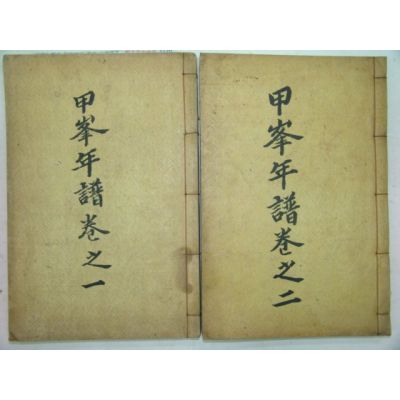 甲峯年譜卷之一
甲峯年譜卷之二